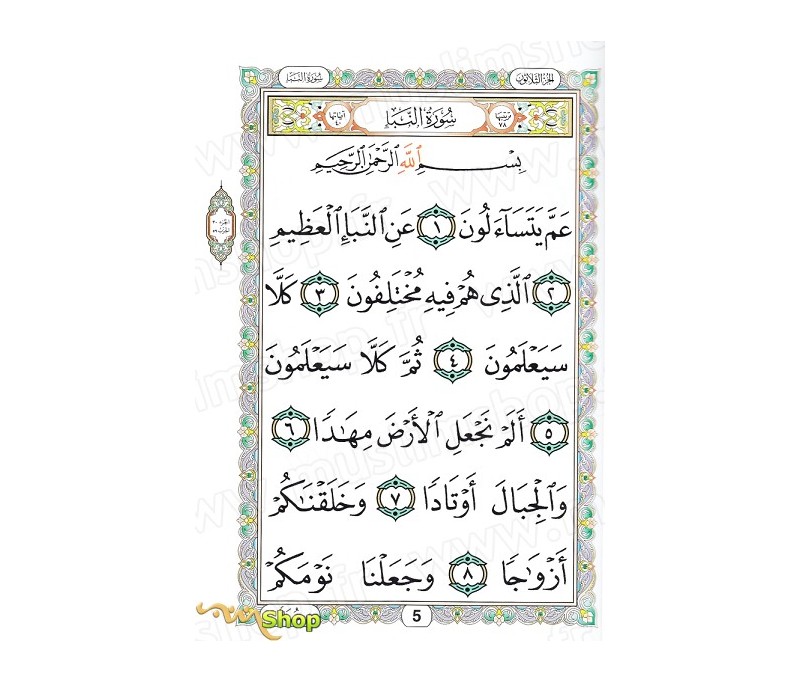 سُورَةُ النَّبَإِ
الجزء الثلاثون
ترتيبها ٧٨
سُورَةُ النَّبَإِ
آياتها ٤٠
بِسْمِ ٱللَّهِ ٱلرَّحْمَٰنِ ٱلرَّحِيمِ
عَمَّ يَتَسَآءَلُونَ ١ عَنِ ٱلنَّبَإِ ٱلْعَظِيمِ
٢ ٱلَّذِى هُمْ فِيهِ مُخْتَلِفُونَ ٣ كَلَّا
سَيَعْلَمُونَ ٤ ثُمَّ كَلَّا سَيَعْلَمُونَ
٥ أَلَمْ نَجْعَلِ ٱلْأَرْضَ مِهَٰدًا ٦
وَٱلْجِبَالَ أَوْتَادًا ٧ وَخَلَقْنَٰكُمْ
أَزْوَٰجًا ٨ وَجَعَلْنَا نَوْمَكُمْ
5
Shop